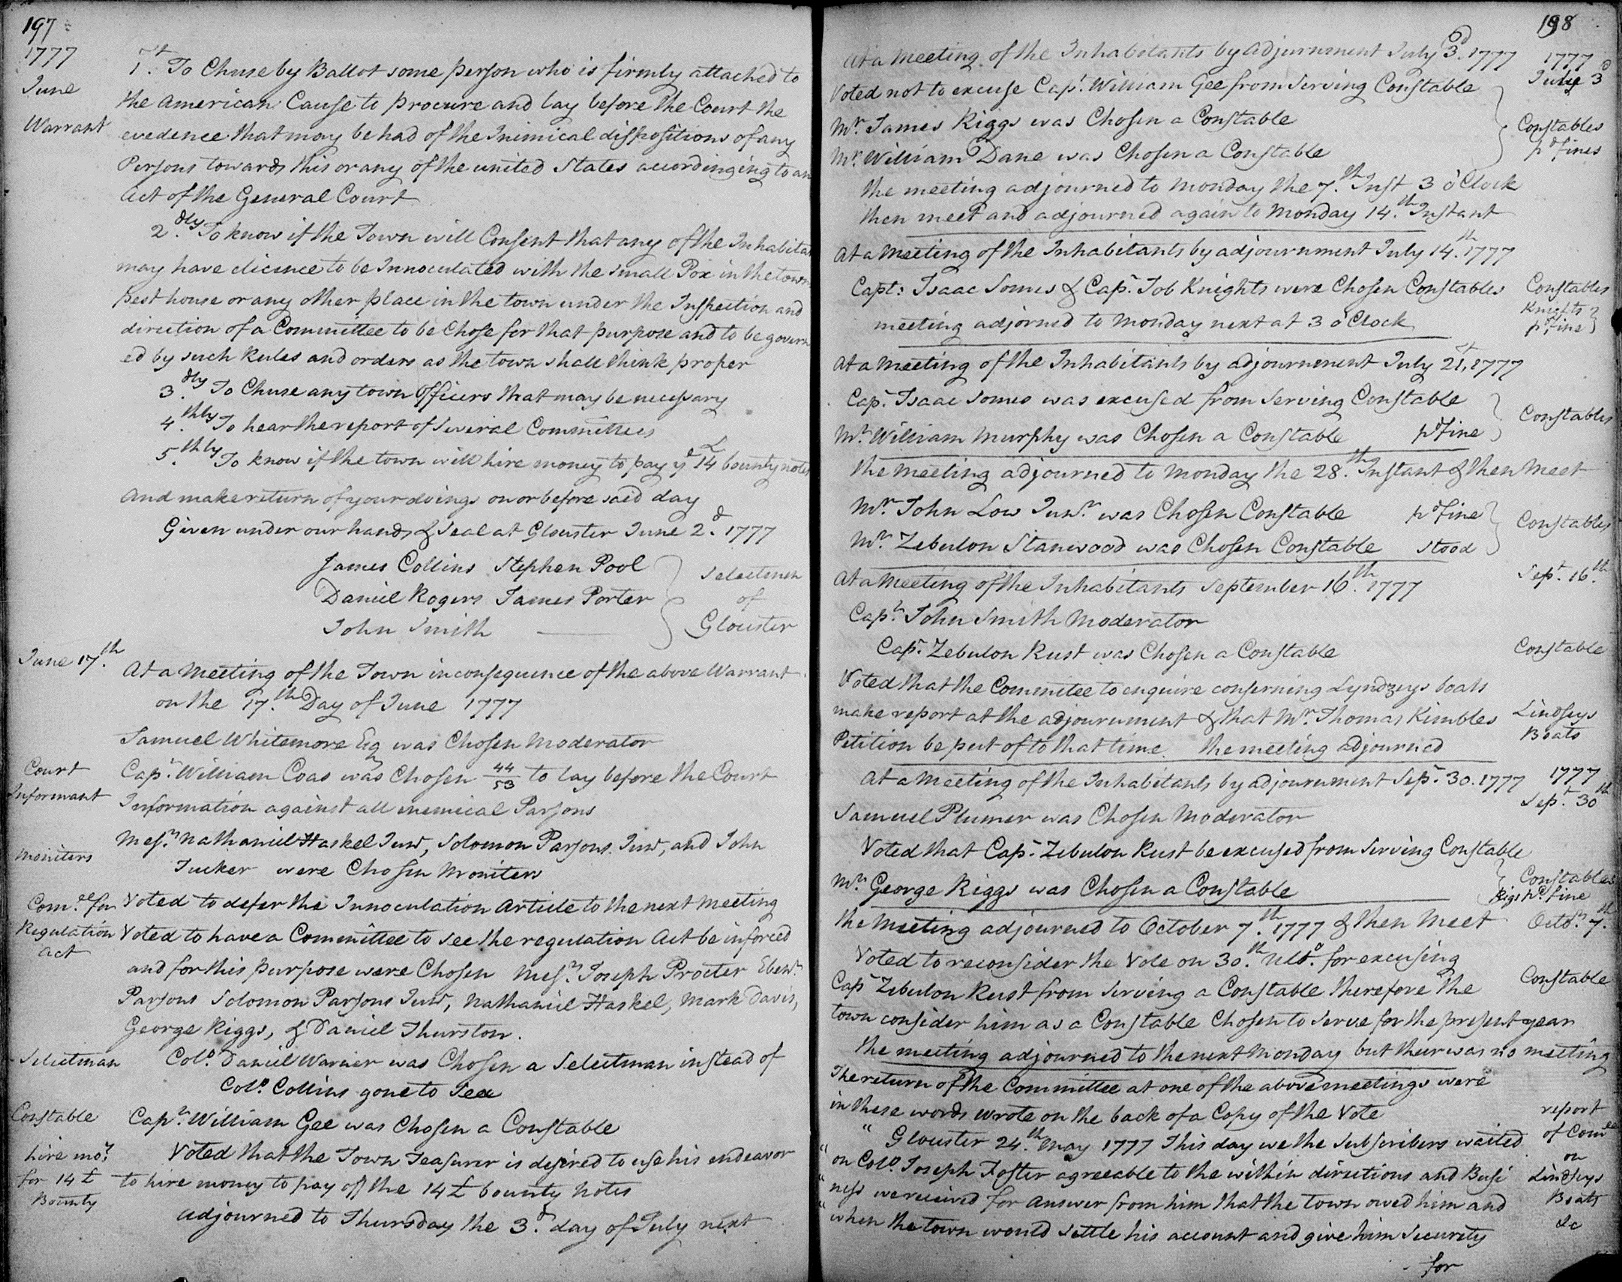 197
1777
June
Warrant
1st. To Chuse by Ballot some person who is firmly attached to
the American Cause to procure and lay before the Court the
evedence that may be had of the Inimical dispositions of any
Persons towards this or any of the united States accordinging to an
act of the General Court
2.dly To know if the Town will Consent that any of the Inhabitan
may have licence to be Innoculated with the Small Pox in the town
pest house or any other place in the town under the Inspection and
direction of a Committee to be Chose for that purpose and to be govern
ed by such Rules and orders as the town shall think proper
3.dly To Chuse any town Officers that may be necessary
4.thly To hear the report of Several Committees
5.thly To know if the town will hire money to pay ye £14 bounty notes
And make return of your doings on or before said day
Given under our hands & Seal at Glouster June 2.d 1777
James Collins Stephen Pool
Daniel Rogers James Porter
John Smith
Selectmen
of
Glouster
June 17.th
At a Meeting of the Town in consequence of the above Warrant
on the 17.th Day of June 1777
Samuel Whitemore Esq was Chosen Moderator
Court
Informant
Capt. William Coas was Chosen 44/53 to lay before the Court
Information against all inemical Parsons
moniters
Messrs Nathaniel Haskel Junr, Solomon Parsons Junr, and John
Tucker were Chosen Moniters
Comee for
Regulation
act
Voted to defer the Innoculation Article to the next meeting
Voted to have a Committee to see the regulation Act be inforced
and for this purpose were Chosen Messrs Joseph Procter Ebenr
Parsons Solomon Parsons Junr, Nathaniel Haskel, Mark Davis,
George Riggs, & Daniel Thurston.
Selectman
Colo. Daniel Warner was Chosen a Selectman instead of
Colo. Collins gone to Sea
Constable
Capt William Gee was Chosen a Constable
hire mo.y
for 14£
Bounty
Voted that the Town Teasurer is desired to use his endeavor
to hire money to pay off the 14£ bounty notes
adjourned to Thursday the 3.d day of July next
198
At a Meeting of the Inhabetants by adjurnment July 3d. 1777
1777
July 3d
Voted not to excuse Capt. William Gee from Serving Constable
Mr. James Riggs was Chosen a Constable
Mr William Dane was Chosen a Constable
Constables
pd fines
the meeting adjourned to Monday the 7.th Inst 3 oClock
then meet and adjourned again to Monday 14.th Instant
At a Meeting of the Inhabetants by adjournment July 14.th 1777
Capt. Isaac Somes & Capt. Job Knights were Chosen Constables
Constables
Knights
pd fine
meeting adjorned to Monday next at 3 oClock
At a Meeting of the Inhabitants by adjournement July 21st, 1777
Capt. Isaac Somes was excused from Serving Constable
Mr. William Murphy was Chosen a Constable pd fine
Constables
the meeting adjourned to monday the 28.th Instant & then Meet
Mr. John Low Junr. was Chosen Constable pd fine
Mr. Zebulon Stanwood was Chosen Constable Stood
Constables
At a Meeting of the Inhabitants September 16.th 1777
Sept. 16.th
Capt. John Smith Moderator
Capt. Zebulon Rust was Chosen a Constable
Constable
Voted that the Committee to enquire conserning Lyndzeys boats
make report at the adjournment & that Mr. Thomas Kimbles
Petition be put of to that time the meeting adjourned
Lindseys
Boats
At a Meeting of the Inhabetants by adjournment Sept. 30. 1777
1777
Sept. 30th
Samuel Plumer was Chosen Moderator
Voted that Capt. Zebulon Rust be excused from Serving Constable
Mr. George Riggs was Chosen a Constable
Constables
Rigs pd fine
The Meeting adjourned to October 7.th 1777 & then Meet
Octobr. 7.th
Voted to reconsider the Vote on 30.th Ulto. for excusing
Capt Zebulon Rust from Serving a Constable therefore the
town consider him as a Constable Chosen to Serve for the present year
Constable
the meeting adjourned to the next Monday but their was no meeting
The return of the Committee at one of the above meetings were
in these words wrote on the back of a Copy of the Vote
report
of Comee
on
Lindseys
Boats
&c
" Glouster 24.th May 1777 This day we the Subscribers waited
" on Colo. Joseph Foster agreeable to the within directions and Busi
" ness we recieved for answer from him that the town owed him and
" when the town would settle his account and give him Security
for